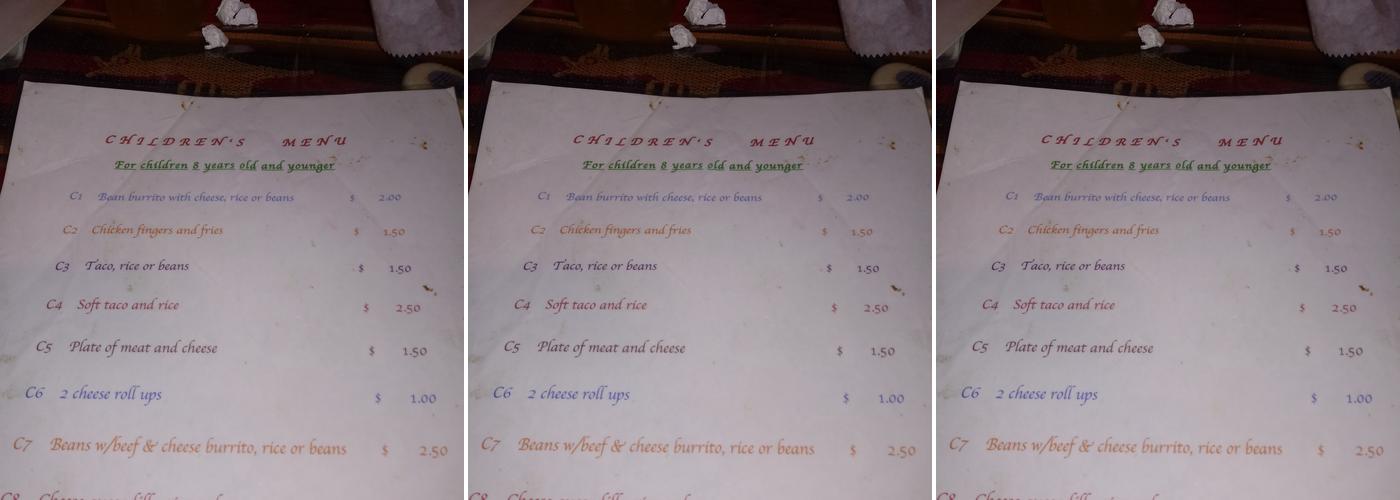 CHILDREN'S MENU
For children 8 years old and younger
C1 Bean burrito with cheese, rice or beans $ 2.00
C2 Chicken fingers and fries $ 1.50
C3 Taco, rice or beans $ 1.50
C4 Soft taco and rice $ 2.50
C5 Plate of meat and cheese $ 1.50
C6 2 cheese roll ups $ 1.00
C7 Beans w/beef & cheese burrito, rice or beans $ 2.50
C8
CHILDREN'S MENU
For children 8 years old and younger
C1 Bean burrito with cheese, rice or beans $ 2.00
C2 Chicken fingers and fries $ 1.50
C3 Taco, rice or beans $ 1.50
C4 Soft taco and rice $ 2.50
C5 Plate of meat and cheese $ 1.50
C6 2 cheese roll ups $ 1.00
C7 Beans w/beef & cheese burrito, rice or beans $ 2.50
C8
CHILDREN'S MENU
For children 8 years old and younger
C1 Bean burrito with cheese, rice or beans $ 2.00
C2 Chicken fingers and fries $ 1.50
C3 Taco, rice or beans $ 1.50
C4 Soft taco and rice $ 2.50
C5 Plate of meat and cheese $ 1.50
C6 2 cheese roll ups $ 1.00
C7 Beans w/beef & cheese burrito, rice or beans $ 2.50
C8